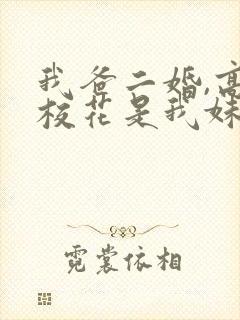 我爸二婚,高
校花是我妹
霓裳依相